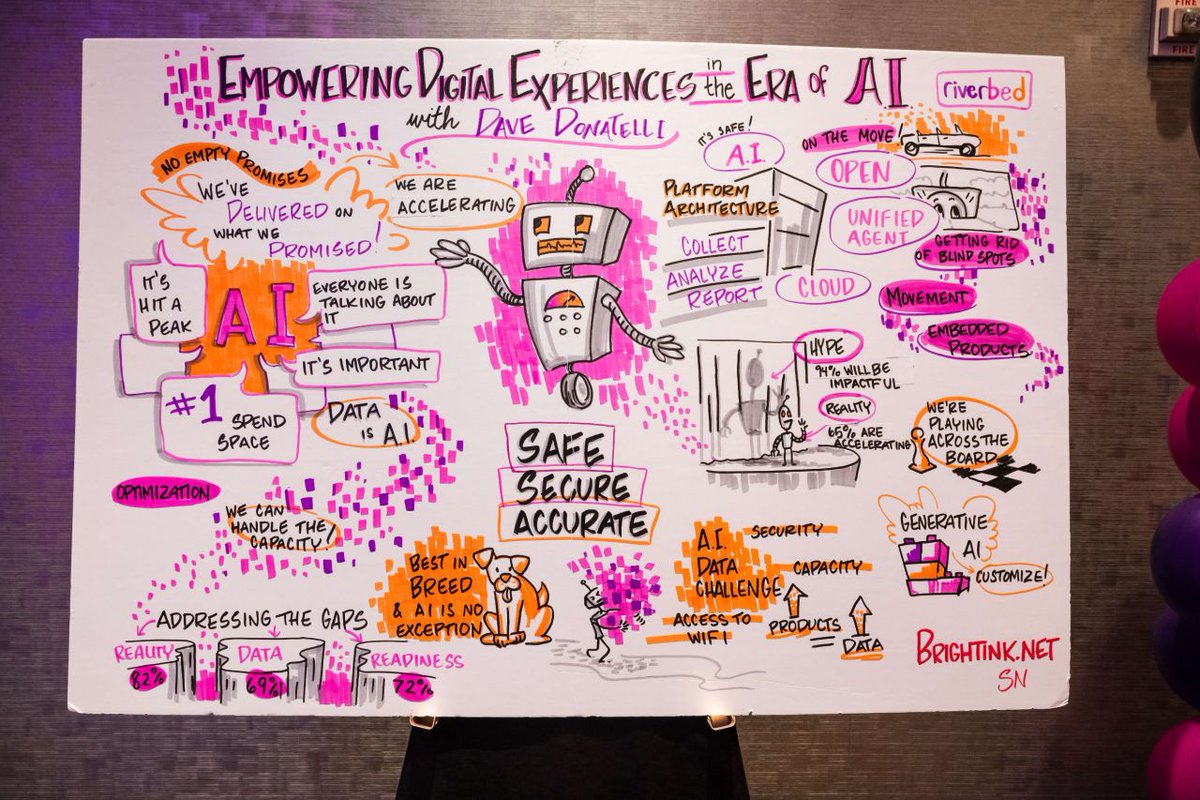 FIRE
FIRE
EMPOWERING DIGITAL EXPERIENCES in the ERA OF AI
with DAVE DONATELLI
riverbed
NO EMPTY PROMISES
WE'VE
DELIVERED ON
WHAT WE
PROMISED!
WE ARE
ACCELERATING
IT'S
HIT A
PEAK
AI
EVERYONE IS
TALKING ABOUT
IT
IT'S IMPORTANT
#1 SPEND
SPACE
DATA
IS A.I.
IT'S SAFE!
A.I.
PLATFORM
ARCHITECTURE
COLLECT
ANALYZE
REPORT
CLOUD
ON THE MOVE!
OPEN
UNIFIED
AGENT
GETTING RID
OF BLIND SPOTS
MOVEMENT
EMBEDDED
PRODUCTS
HYPE
94% WILL BE
IMPACTFUL
REALITY
65% ARE
ACCELERATING
WE'RE
PLAYING
ACROSS THE
BOARD
OPTIMIZATION
WE CAN
HANDLE THE
CAPACITY!
SAFE
SECURE
ACCURATE
ADDRESSING THE GAPS
REALITY
82%
DATA
69%
READINESS
72%
BEST IN
BREED
& AI IS NO
EXCEPTION
A.I.
DATA
CHALLENGE
SECURITY
CAPACITY
ACCESS TO
WIFI
PRODUCTS
DATA
GENERATIVE
AI
CUSTOMIZE!
BRIGHTINK.NET
SN